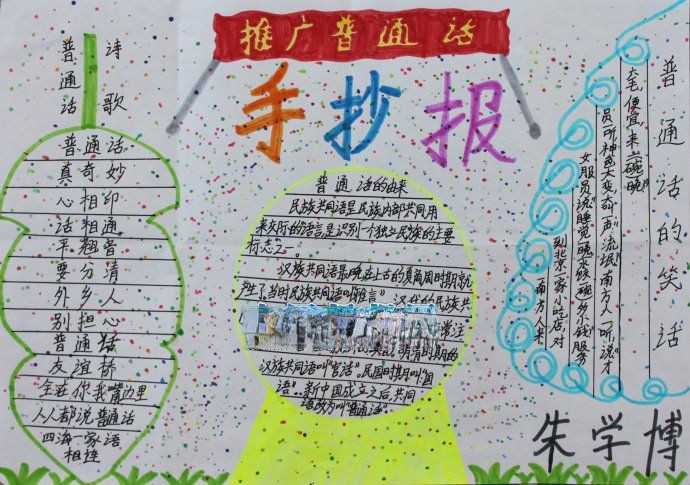 推广普通话
手抄报
普通话
诗歌
普通话
真奇妙
心相印
话相通
平翘音
要分清
外乡人
别担心
普通话
友谊桥
全在你我嘴边里
人人都说普通话
四海一家话
相连
普通话的由来
民族共同语是民族内部共同用
来交际的语言是识别一个独立民族的主要
标志之一。
汉族共同语最晚在上古的夏商周时期就
产生了,当时民族共同语叫"雅言"汉代的民族共
明清时期的
汉族共同语叫"官话"。民国时期叫"国
语"。新中国成立之后,共同
语改为叫"普通话"。
普通话的笑话
南方人来
到北京一家小吃店,对
女服员说"睡觉一晚 多少钱"服务
员听神色大变 一声"流氓"南方人一听,说"才
便宜,来二碗
朱学博